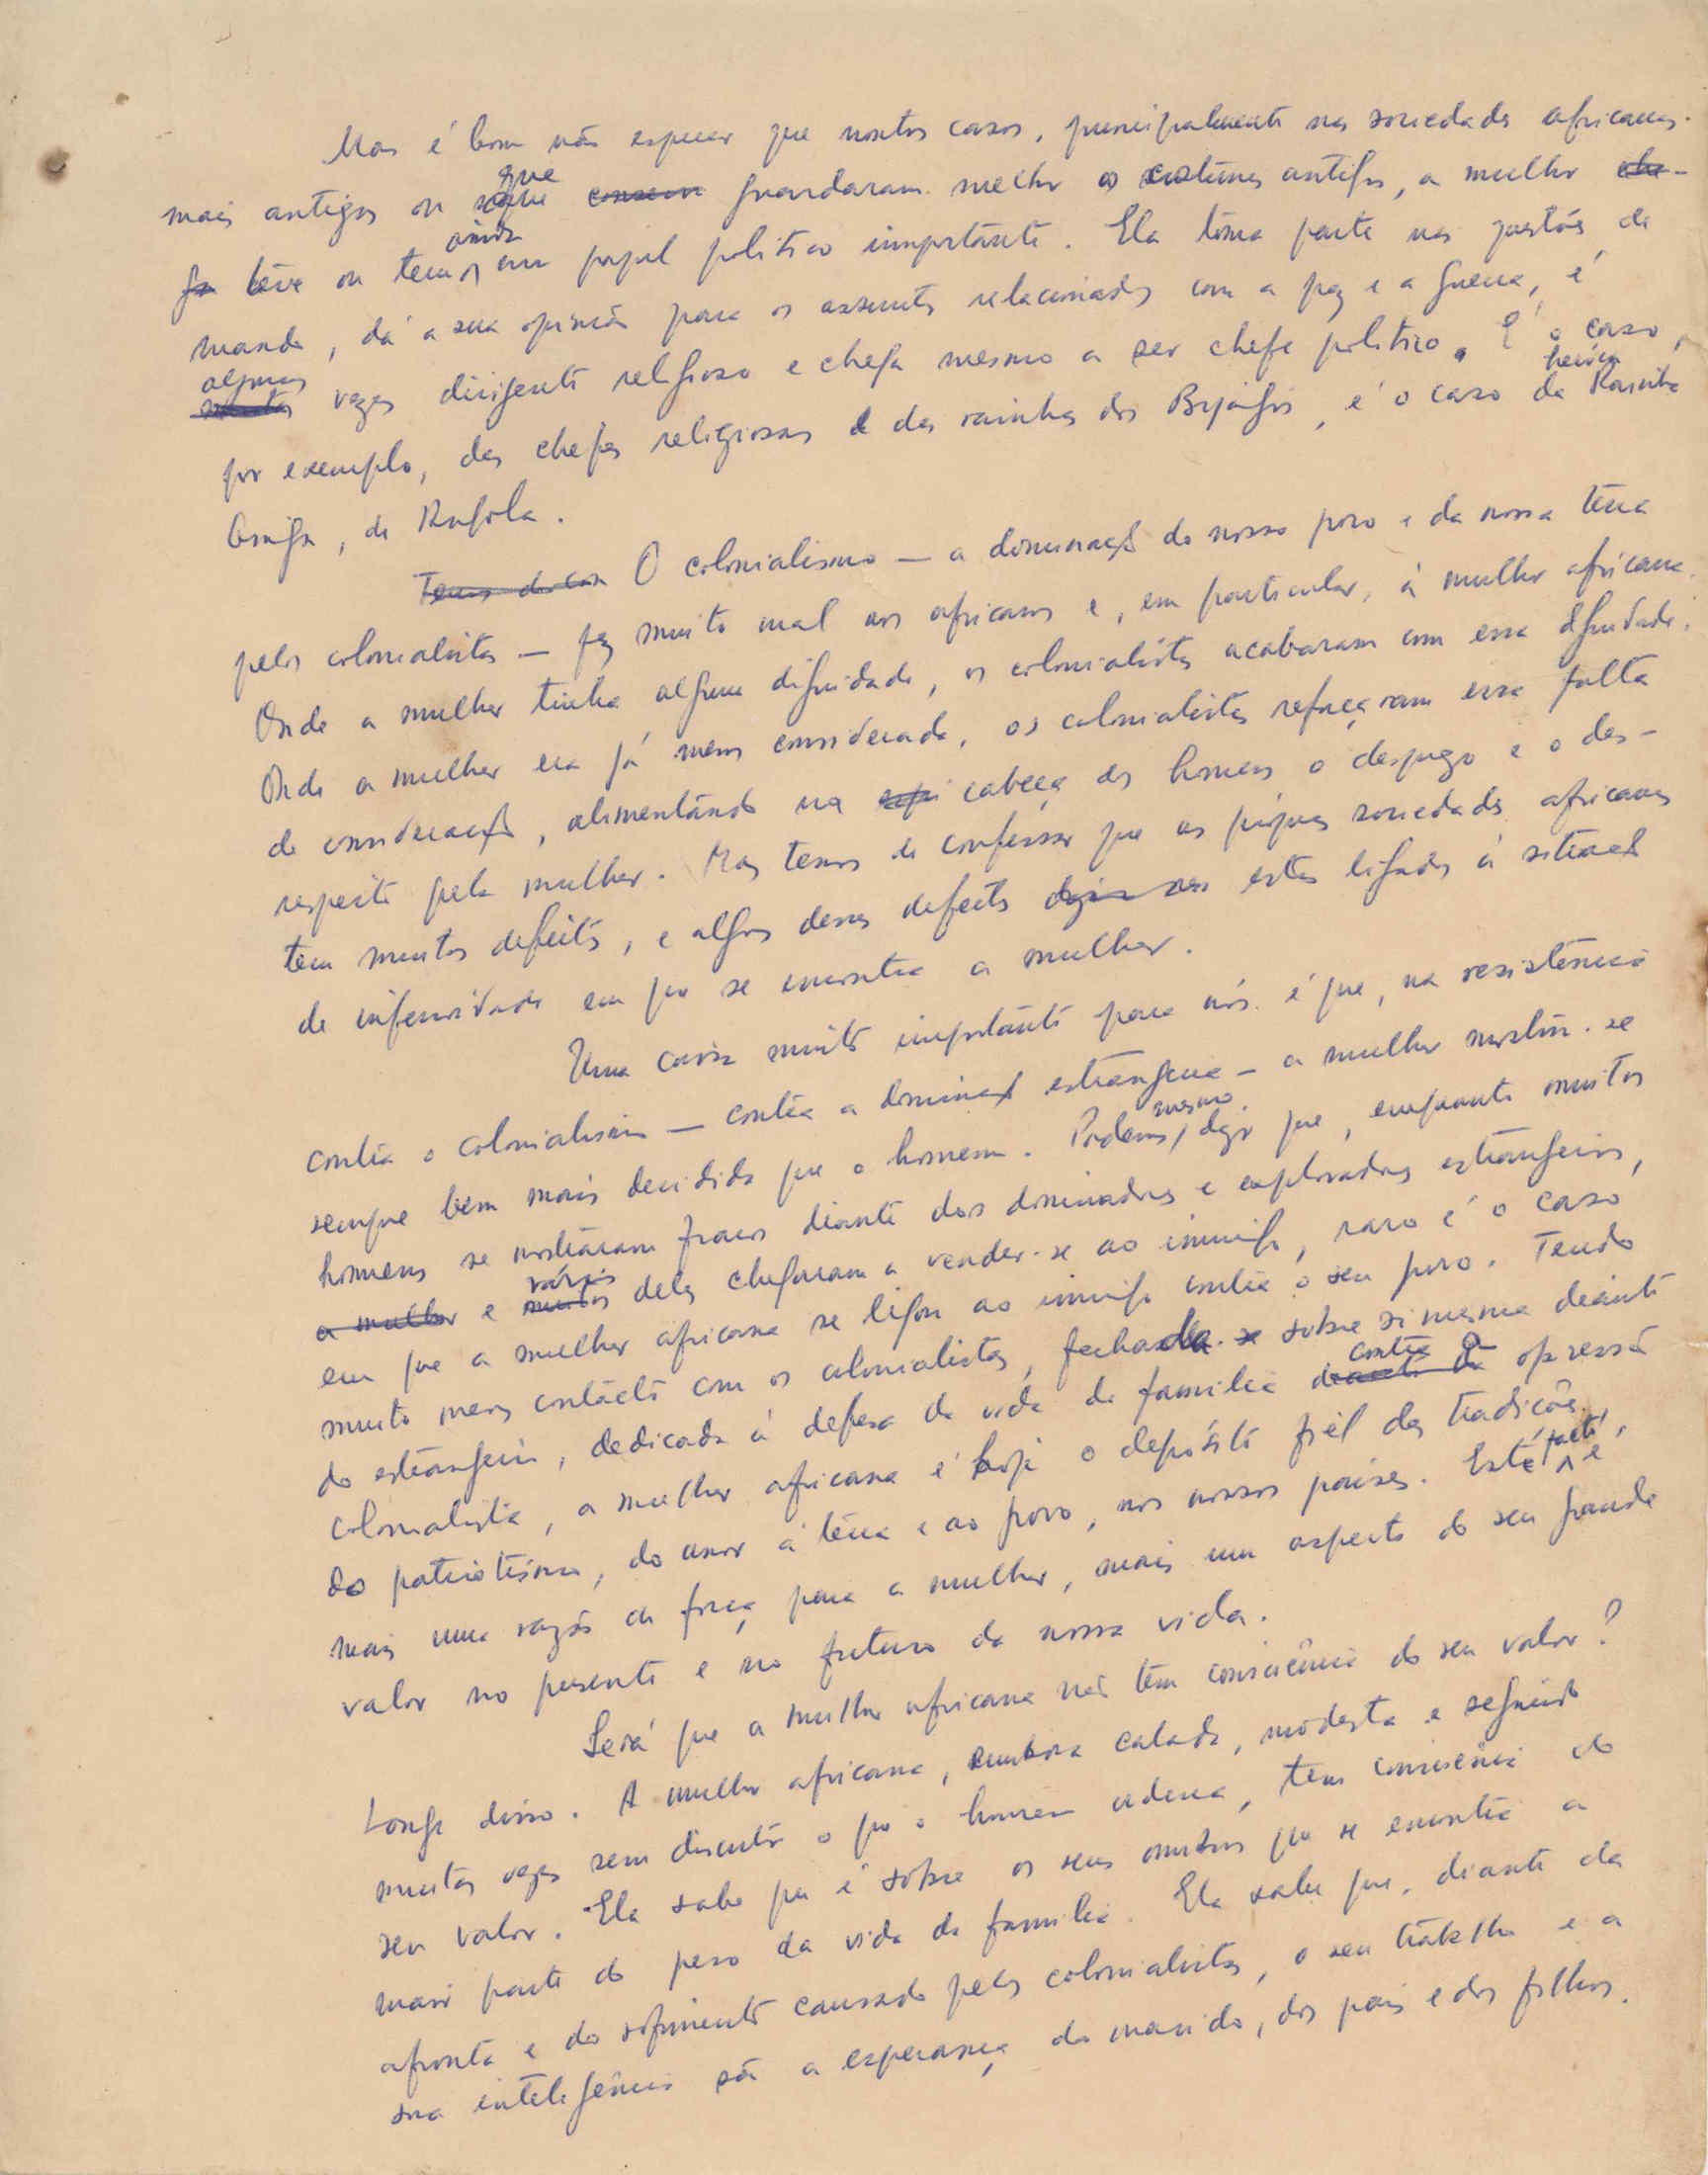 Mas é bom não esquecer que noutros casos, principalmente nas sociedades africanas
mais antigas ou que guardaram melhor os costumes antigos, a mulher
teve ou tem ainda um papel politico importante. Ela toma parte nas questões de
mando, dá a sua opinião para os assuntos relacionados com a paz e a guerra, é
algumas vezes dirigente religiosa e chega mesmo a ser chefe politico. É o caso,
por exemplo, das chefes religiosas e das rainhas dos Bijagós, é o caso da heroica Rainha
Ginga, de Angola.
O colonialismo — a dominação do nosso povo e da nossa terra
pelos colonialistas — fez muito mal aos africanos e, em particular, à mulher africana.
Onde a mulher tinha alguma dignidade, os colonialistas acabaram com essa dignidade.
Onde a mulher era já menos considerada, os colonialistas reforçaram essa falta
de consideração, alimentando na cabeça dos homens o desprezo e o des-
respeito pela mulher. Mas temos de confessar que as próprias sociedades africanas
tem muitos defeitos, e alguns desses defeitos estão ligados à situação
de inferioridade em que se encontra a mulher.
Uma coisa muito importante para nós é que, na resistência
contra o colonialismo — contra a dominação estrangeira — a mulher mostrou-se
sempre bem mais decidida que o homem. Podemos mesmo dizer que, enquanto muitos
homens se mostraram fracos diante dos dominadores e exploradores estrangeiros,
e vários deles chegaram a vender-se ao inimigo, raro é o caso
em que a mulher africana se ligou ao inimigo contra o seu povo. Tendo
muito menos contácto com os colonialistas, fechada sobre si mesma diante
do estrangeiro, dedicada à defesa da vida de familia contra a opressão
colonialista, a mulher africana é hoje o depósito fiel das tradições,
do patriotismo, do amor à terra e ao povo, nos nossos países. Este facto é
mais uma razão de força para a mulher, mais um aspecto do seu grande
valor no presente e no futuro da nossa vida.
Será que a mulher africana não tem consciência do seu valor?
Longe disso. A mulher africana, embora calada, modesta e seguindo
muitas vezes sem discutir o que o homem ordena, tem consciência do
seu valor. Ela sabe que é sobre os seus ombros que se encontra a
maior parte do peso da vida de familia. Ela sabe que, diante da
afronta e do sofrimento causado pelos colonialistas, o seu trabalho e a
sua inteligência são a esperança do marido, dos pais e dos filhos.